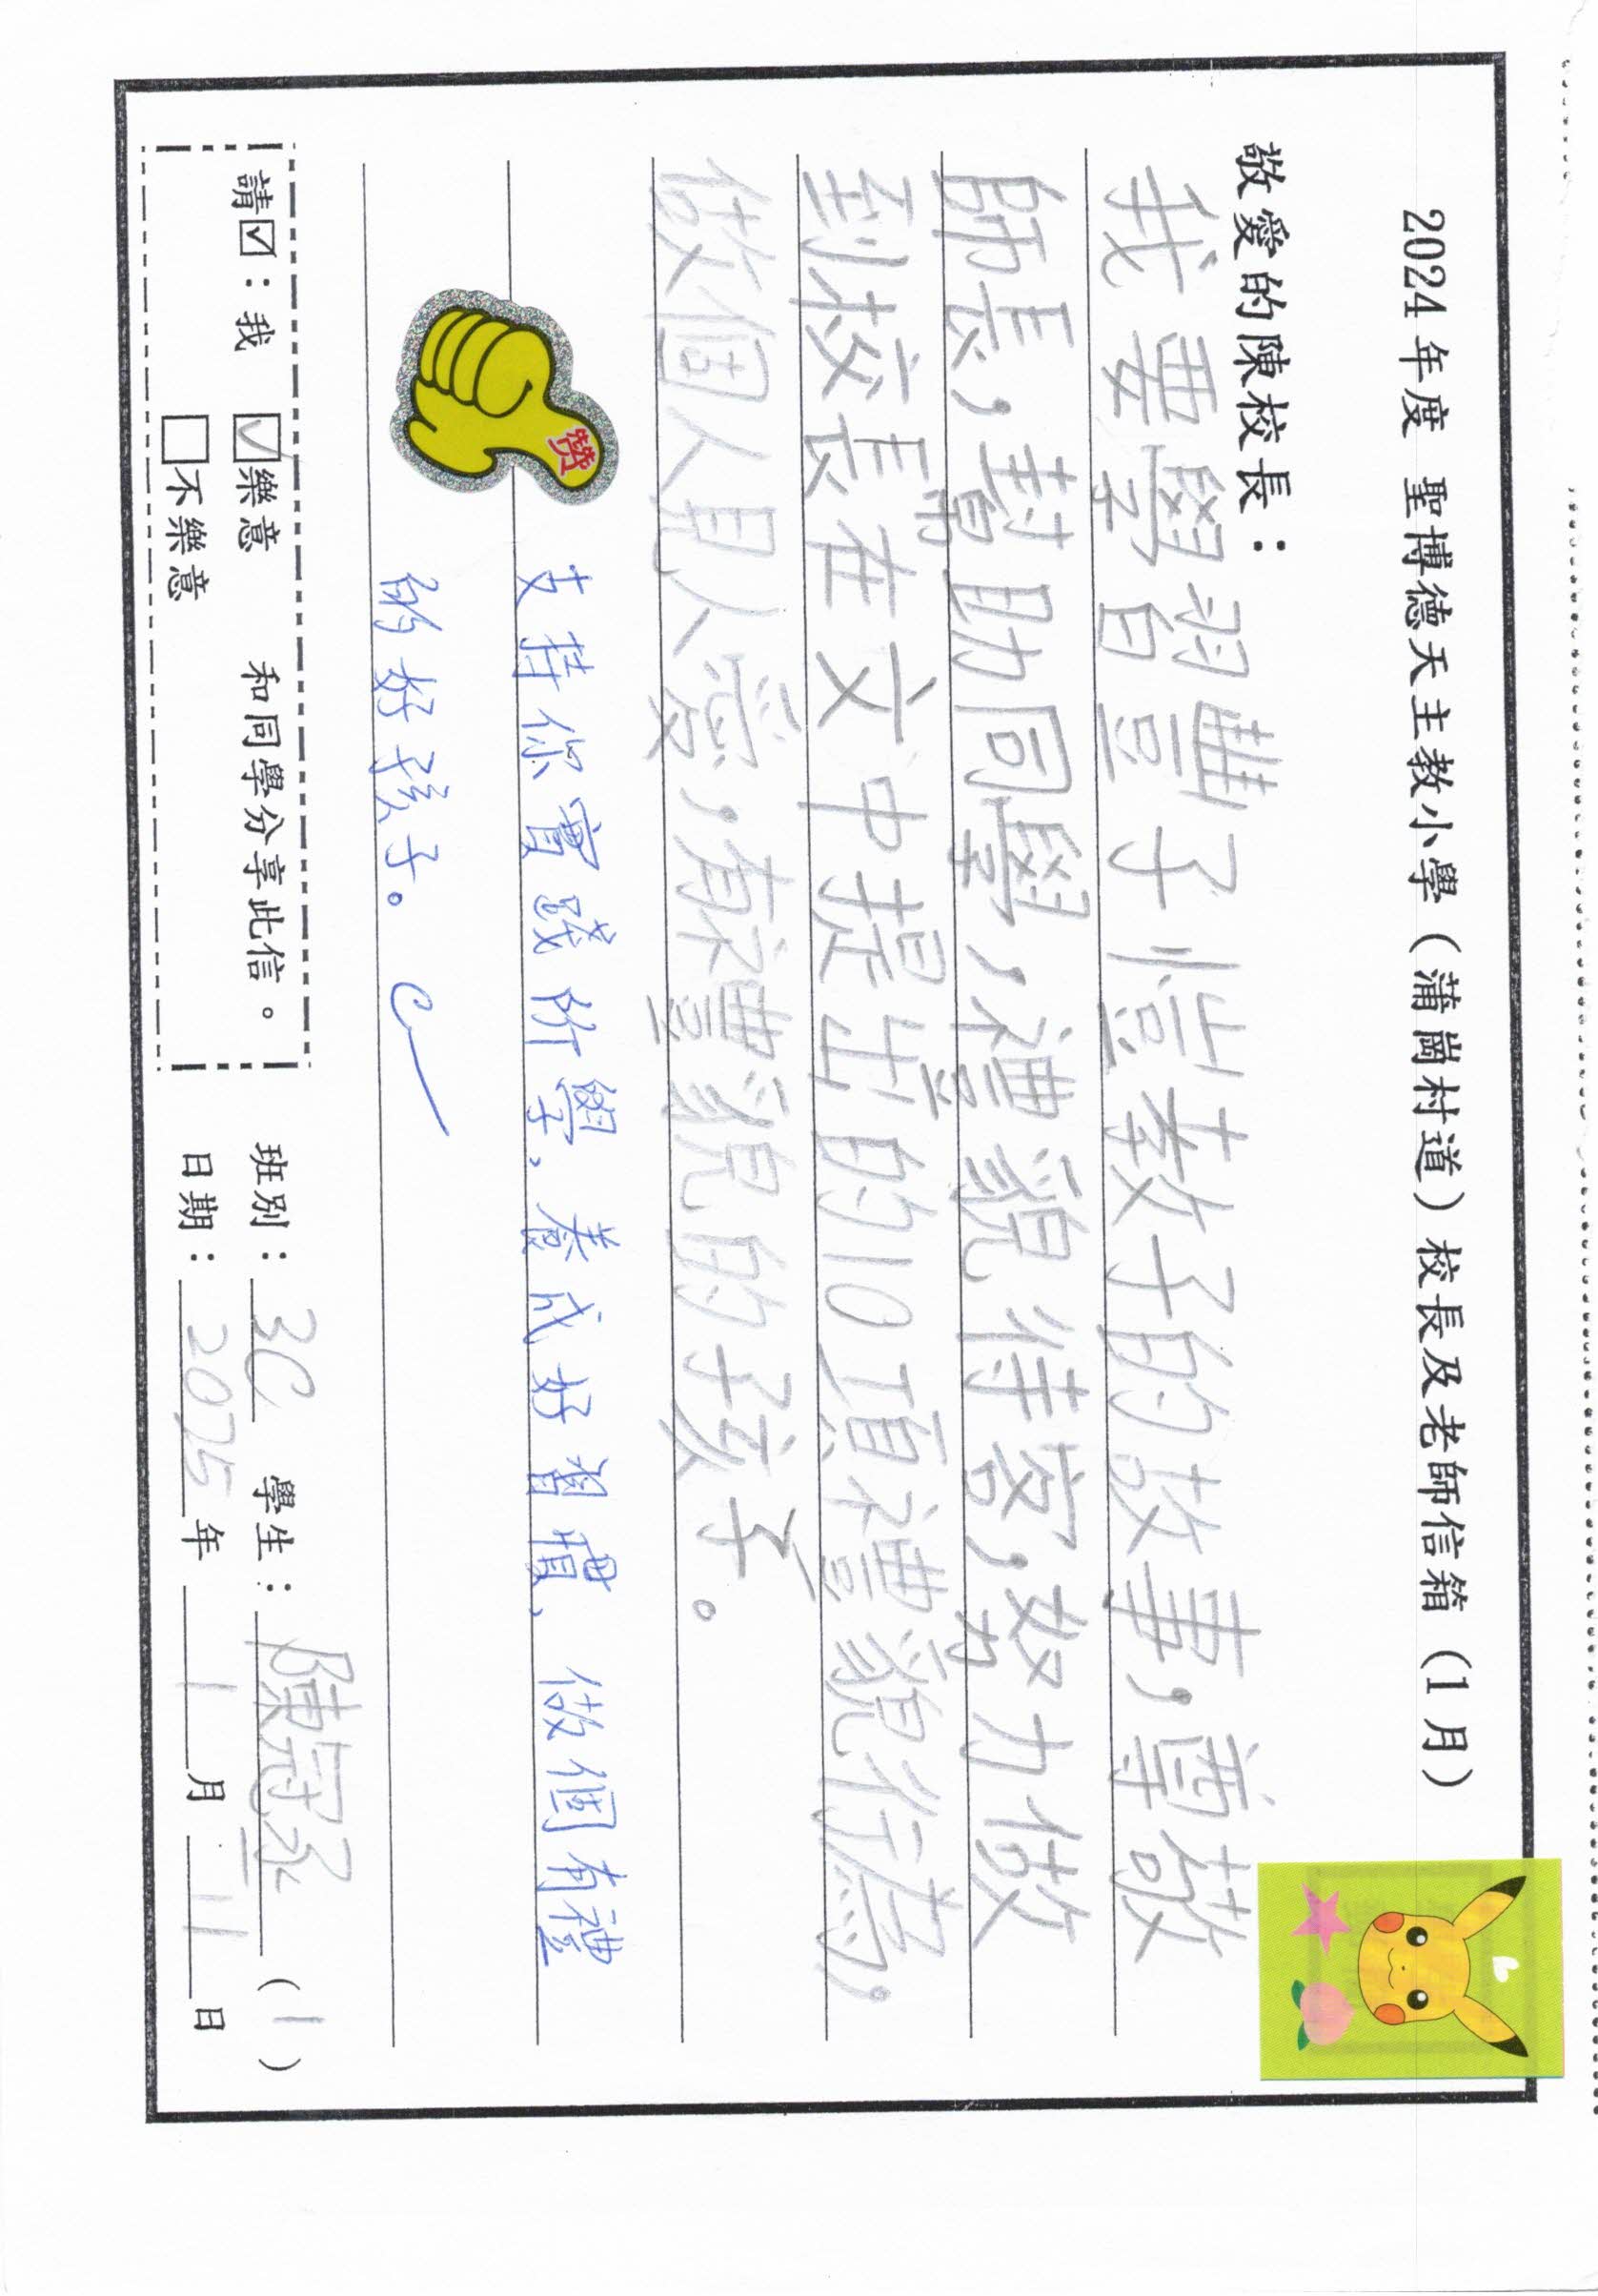 2024 年度 聖博德天主教小學（蒲崗村道）校長及老師信箱（1 月）
敬愛的陳校長：
我要學習豐子愷教子的故事，尊敬
師長，幫助同學，禮貌待客，努力做
到校長在文中提出的10項禮貌行為，
做個人見人愛，有禮貌的孩子。
支持你實踐所學、養成好習慣、做個有禮
的好孩子。
赞
請☑：我 ☑樂意 和同學分享此信。
□不樂意
班別：3C 學生：陳冠丞（1）
日期：2025年1月11日